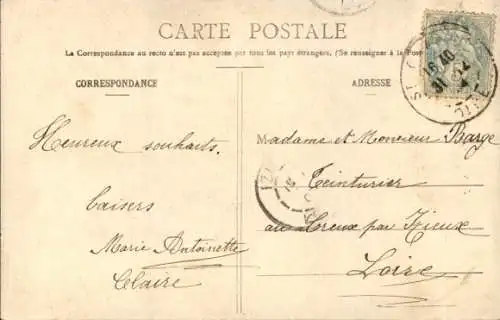 CARTE POSTALE
La Correspondance au recto n'est pas acceptée par tous les pays étrangers. (Se renseigner à la Poste
CORRESPONDANCE
ADRESSE
Heureux souhaits.
baisers
Marie Antoinette
Claire
Madame et Monsieur Barge
Teinturier
au Creux par Izieux
Loire